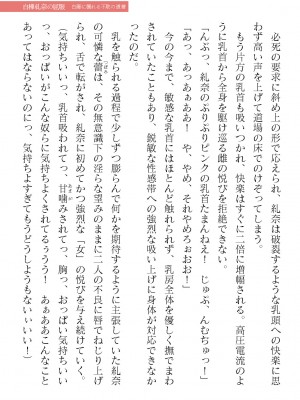 必死の要求に斜め上の形で応えられ、糺奈は破裂するような乳頭への快楽に思
わず高い声を上げて道場の床でのけぞってしまう。
もう片方の乳首も吸いつかれ、快楽はすぐに二倍に増幅される。高圧電流のよ
うに乳首から全身を駆け巡る雌の悦びを拒絶できない。
「んぶっ、糺奈のぷりぷりピンクの乳首たまんねえ！　じゅぷ、んむちゅっ！」
「あっ、あっああああ！　や、やめ、それやめろぉおお！」
今の今まで、敏感な乳首にはほとんど触れられず、乳房全体を優しく撫でまわ
されていたこともあり、鋭敏な性感帯への強烈な吸い上げに身体が対応できなか
ったのだ。
乳を触られる過程で少しずつ膨らんで何かを期待するように主張していた糺奈
の可憐な蕾は、その無意識下の淫らな望みのままに二人の不良に唇でねじり上げ
られ、舌で転がされ、糺奈に初めてかつ強烈な「女」の悦びを与え続けていく。
「気持ちいいっ、乳首吸われてっ、甘噛みされてっ、胸っ、おっぱい気持ちいい
っ、おっぱいがこんな奴らに気持ちよくされてるぅうう！　あぁああこんなこと
あってはならないのにっ、気持ちよすぎてもうどうしようもないいいい！」